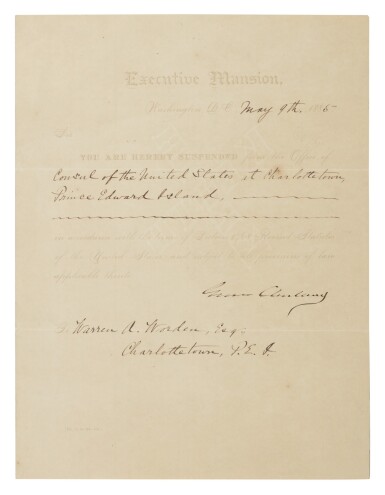 Executive Mansion,
Washington, D.C. May 9th, 1885
YOU ARE HEREBY SUSPENDED from the Office of
Consul of the United States at Charlottetown,
Prince Edward Island.
of the United States, and subject to all provisions of law
applicable thereto.
Grover Cleveland
To Warren A. Worden, Esq:
Charlottetown, P.E.I.